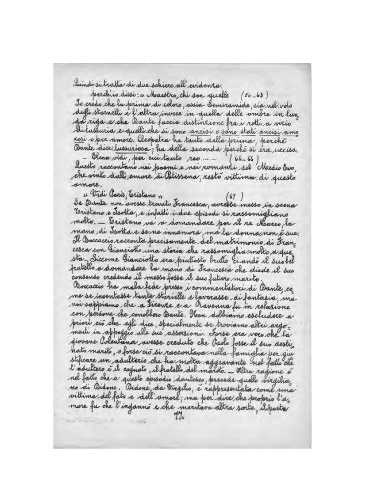 Quindi si tratta di due schiere all'evidenza:
perch'io dissi: "Maestro, chi son quelle (50-48)
Io credo che la prima di coloro, ossia Semiramide, sia nel volo
degli stornelli e l'altra invece in quella delle ombre in lun
ga riga e che Dante faccia distinzione fra i rotti a vizio
di lussuria e quelli che si sono ancisi o sono stati ancisi
così o per amore. Cleopatra ha tanto della prima, perchè
Dante dice lussuriosa; ha della seconda perchè si era uccisa.
— Elena vidi, per cui tanto reo --- — (64-65)
Questo raccontano nei poemi e nei romanzi del Medio Evo,
che vinto dall'amore di Polissena, restò vittima di questo
amore.
"Vidi Paris, Tristano" (67)
Se Dante non avesse trovato Francesca, avrebbe messo in scena
Tristano e Isotta, e infatti i due episodi si rassomigliano
molto. — Tristano va a domandare per il re Marco la
mano di Isotta e se ne innamora, ma la donna non è sua.
Il Boccaccio racconta precisamente del matrimonio di Fran-
cesca con Gianciotto, una storia che rassomiglia molto a que
sta. Siccome Gianciotto era piuttosto brutto si mandò il suo bel
fratello a domandare la mano di Francesca che diede il suo
consenso credendo il messo fosse il suo futuro marito.
Boccaccio ha mala fede presso i commentatori di Dante, co
me se inventasse tante storielle e lavorasse di fantasia, ma
noi sappiamo che a Firenze e a Ravenna fu in relazione
con persone che conobbero Dante. Non dobbiamo escludere a
priori ciò che egli dice, specialmente se troviamo altri argo-
menti in appoggio alle sue asserzioni. Forse era vero che la
giovane Polentana, avesse creduto che Paolo fosse il suo desti
nato marito, o forse ciò si raccontava nella famiglia per giu
stificare un adulterio che ha molto aggravante nel fatto che
l'adultero è il cognato, il fratello del marito. — Altra ragione è
nel fatto che a questo episodio dantesco, precede quello virgilia-
no di Didone. Didone, da Virgilio, è rappresentata come una
vittima del fato e dell'amore; ma per dire che proprio l'a-
more fu che l'ingannò e che meritava altra sorte, il poeta